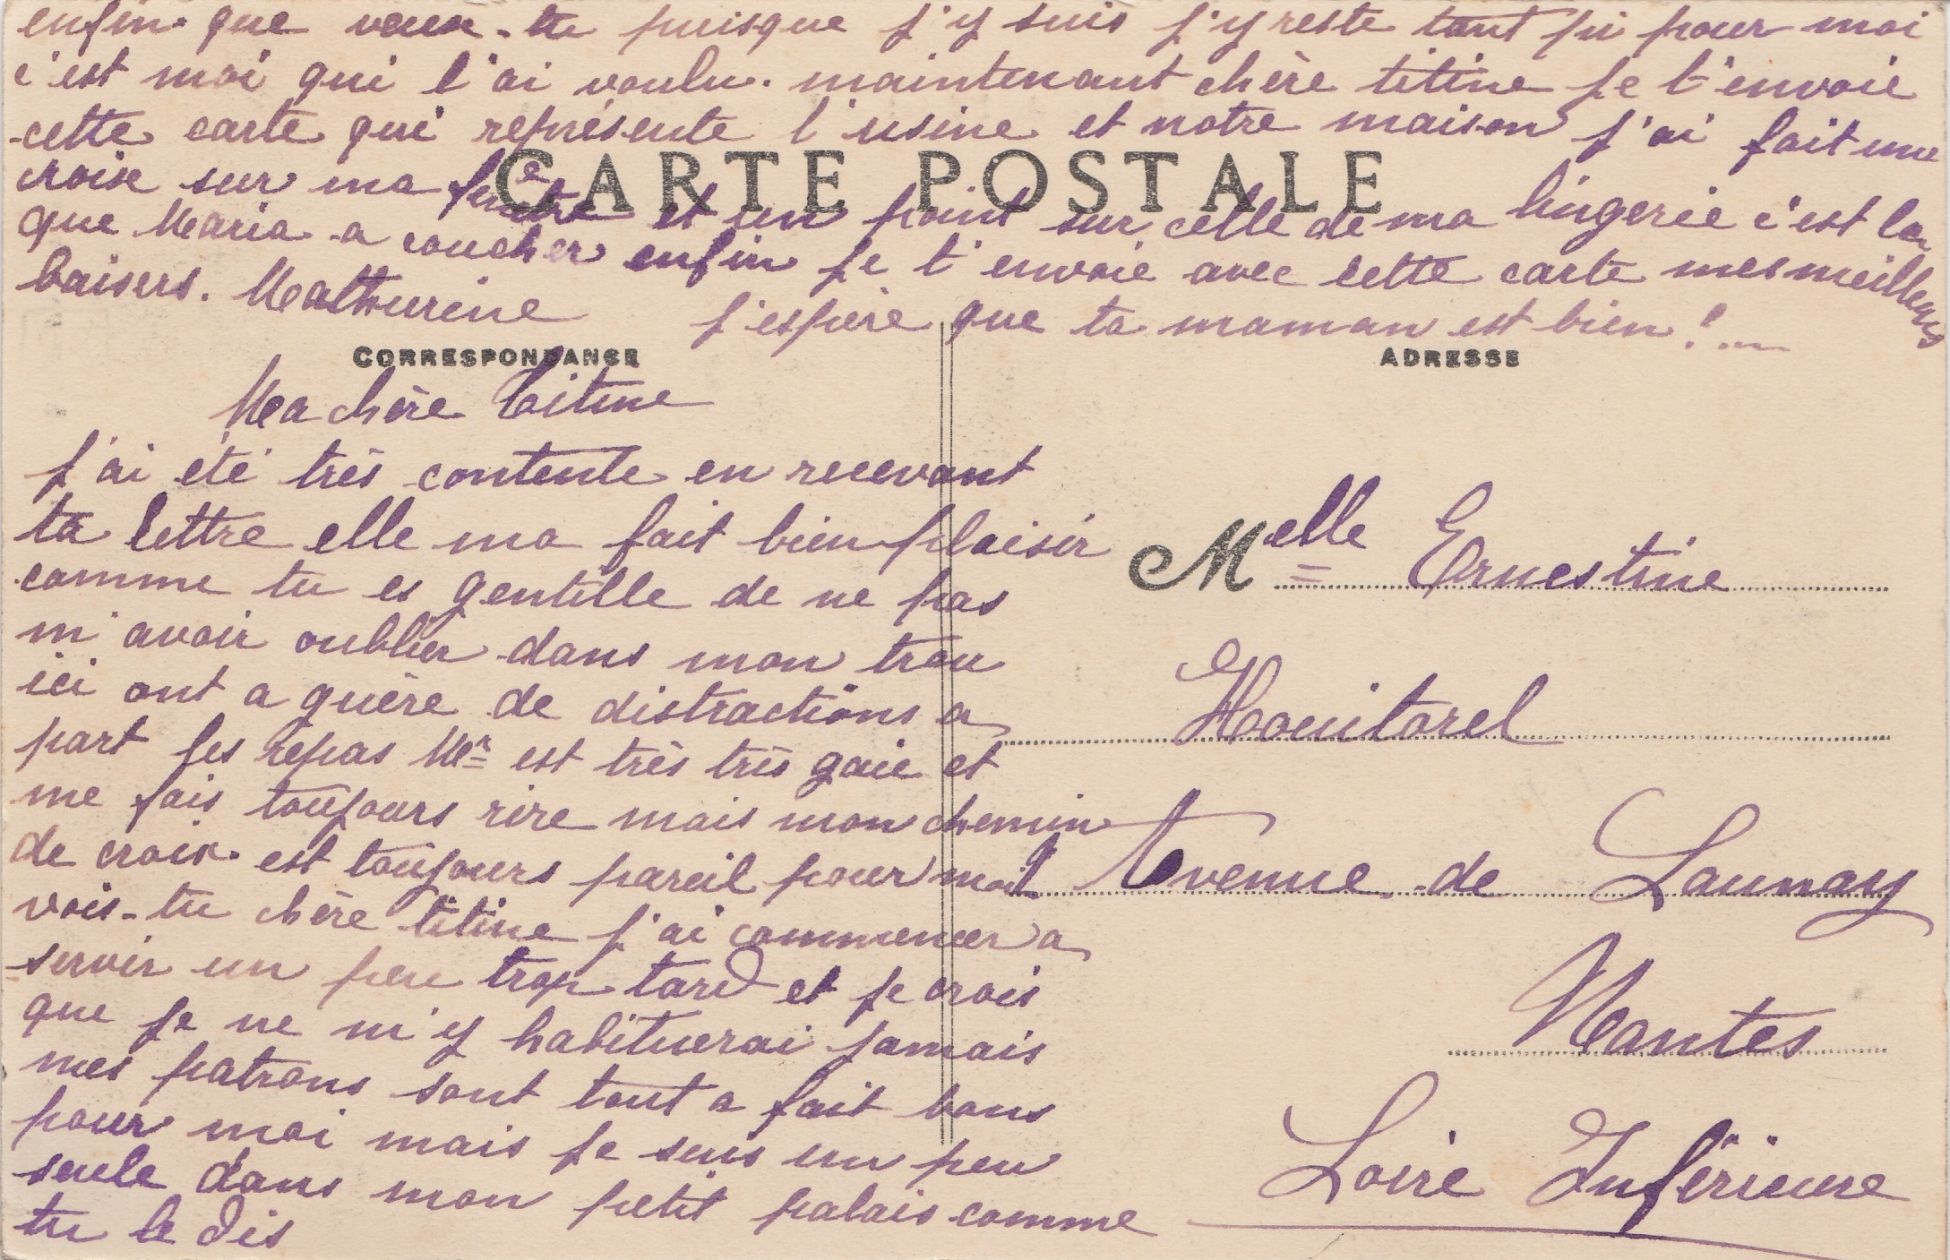 enfin que veux-tu puisque j'y suis j'y reste tant pi pour moi
c'est moi qui l'ai voulu. maintenant chère titine je t'envoie
cette carte qui représente l'usine et notre maison j'ai fait une
croix sur ma fenêtre et un point sur celle de ma lingerie c'est la
que Maria a coucher enfin je t'envoie avec cette carte mes meilleurs
baisers. Mathurine j'espère que ta maman est bien!...
CARTE POSTALE
CORRESPONDANCE
Ma chère Titine
j'ai été très contente en recevant
ta lettre elle ma fait bien plaisir
comme tu es gentille de ne pas
m'avoir oublier dans mon trou
ici ont a guère de distractions a
part les repas Mr est très très gaie et
me fais toujours rire mais mon chemin
de croix est toujours pareil pour moi
vois-tu chère titine j'ai commencer a
servir un peu trop tard et je crois
que je ne m'y habituerai jamais
mes patrons sont tout a fait bons
pour moi mais je suis un peu
seule dans mon petit palais comme
tu le dis
ADRESSE
Melle Ernestine
Houitorel
1 Avenue de Launay
Nantes
Loire Inférieure